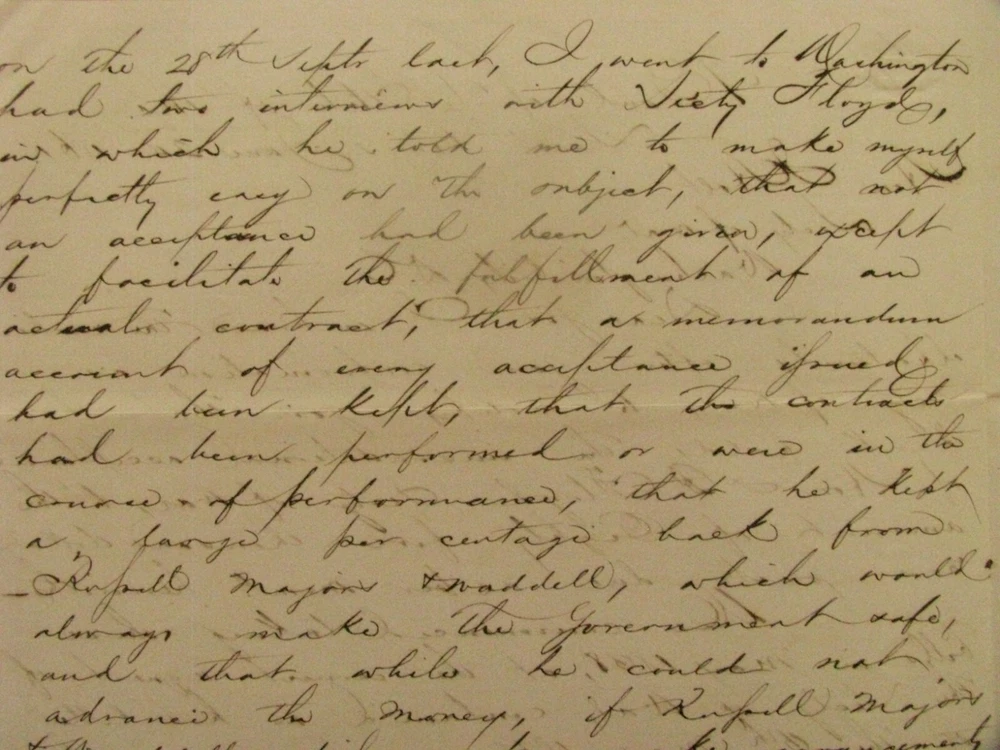 on the 28th Septr last, I went to Washington
had two interviews with Secty Floyd,
in which he told me to make myself
perfectly easy on the subject, that not
an acceptance had been given, except
to facilitate the fulfillment of an
actual contract, that a memorandum
account of every acceptance issued
had been kept, that the contracts
had been performed or were in the
course of performance, that he kept
a large per centage back from
Russell Majors & Waddell, which would
always make the Government safe,
and that while he could not
advance the money, if Russell Majors